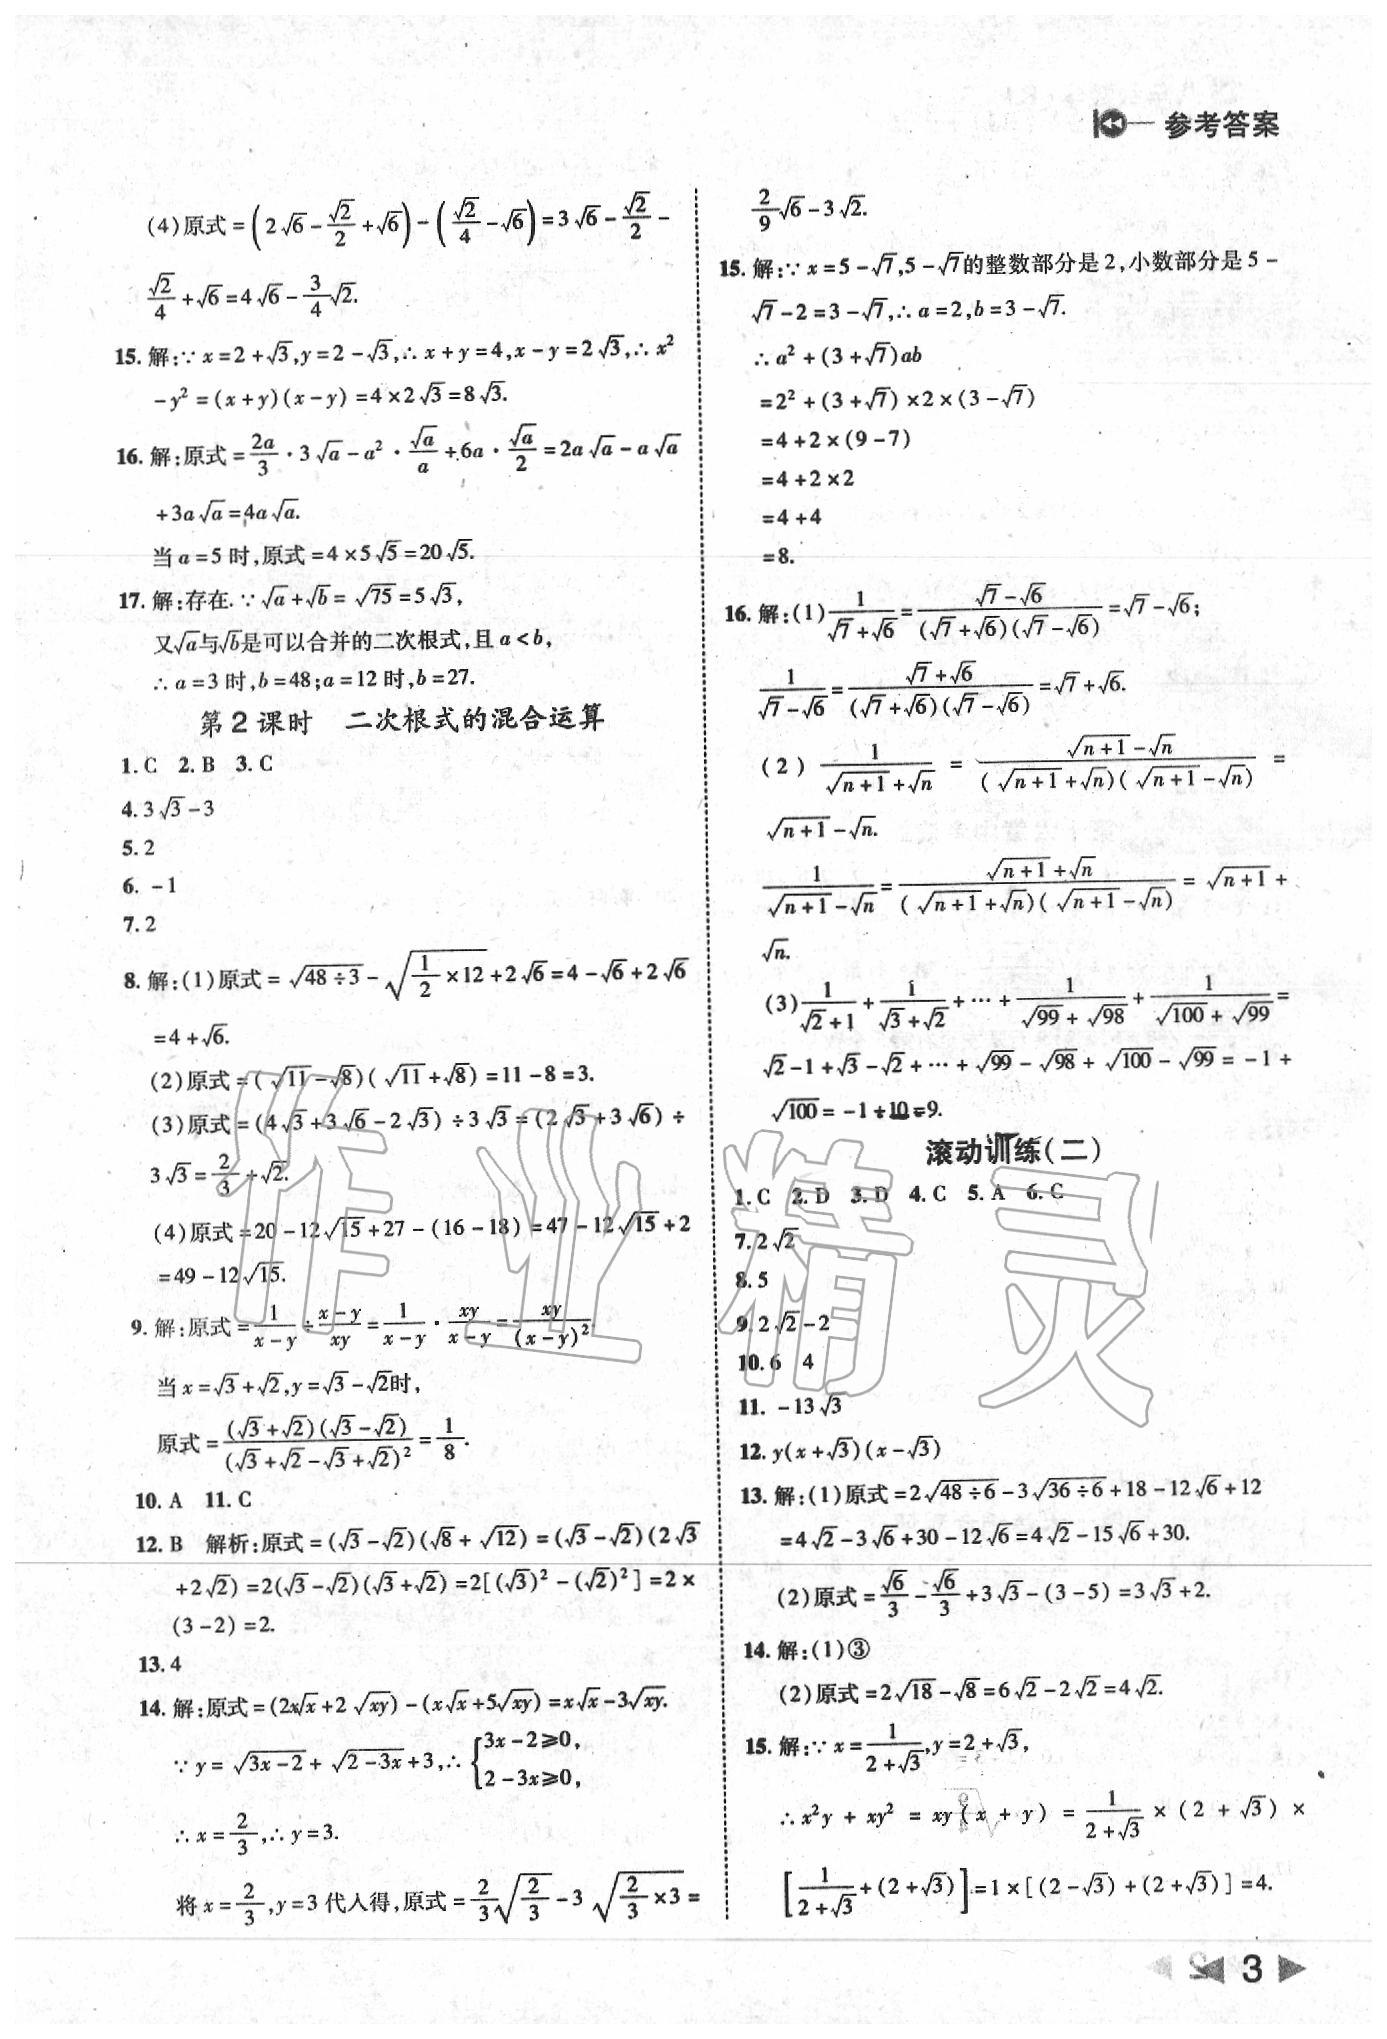 参考答案
(4)原式=(2√6-√2/2+√6)-(√2/4-√6)=3√6-√2/2-
√2/4+√6=4√6-3/4√2.
15.解:∵x=2+√3,y=2-√3,∴x+y=4,x-y=2√3,∴x²
-y²=(x+y)(x-y)=4×2√3=8√3.
16.解:原式=2a/3·3√a-a²·√a/a+6a·√a/2=2a√a-a√a
+3a√a=4a√a.
当a=5时,原式=4×5√5=20√5.
17.解:存在.∵√a+√b=√75=5√3,
又√a与√b是可以合并的二次根式,且a<b,
∴a=3时,b=48;a=12时,b=27.
第2课时 二次根式的混合运算
1.C 2.B 3.C
4.3√3-3
5.2
6.-1
7.2
8.解:(1)原式=√(48÷3)-√(1/2×12)+2√6=4-√6+2√6
=4+√6.
(2)原式=(√11-√8)(√11+√8)=11-8=3.
(3)原式=(4√3+3√6-2√3)÷3√3=(2√3+3√6)÷
3√3=2/3+√2.
(4)原式=20-12√15+27-(16-18)=47-12√15+2
=49-12√15.
9.解:原式=1/(x-y)÷(x-y)/xy=1/(x-y)·xy/(x-y)=xy/(x-y)².
当x=√3+√2,y=√3-√2时,
原式=(√3+√2)(√3-√2)/(√3+√2-√3+√2)²=1/8.
10.A 11.C
12.B 解析:原式=(√3-√2)(√8+√12)=(√3-√2)(2√3
+2√2)=2(√3-√2)(√3+√2)=2[(√3)²-(√2)²]=2×
(3-2)=2.
13.4
14.解:原式=(2x√x+2√xy)-(x√x+5√xy)=x√x-3√xy.
∵y=√(3x-2)+√(2-3x)+3,∴{3x-2≥0,
2-3x≥0,
∴x=2/3,∴y=3.
将x=2/3,y=3代人得,原式=2/3√(2/3)-3√(2/3×3)=
2/9√6-3√2.
15.解:∵x=5-√7,5-√7的整数部分是2,小数部分是5-
√7-2=3-√7,∴a=2,b=3-√7.
∴a²+(3+√7)ab
=2²+(3+√7)×2×(3-√7)
=4+2×(9-7)
=4+2×2
=4+4
=8.
16.解:(1)1/(√7+√6)=(√7-√6)/(√7+√6)(√7-√6)=√7-√6;
1/(√7-√6)=(√7+√6)/(√7+√6)(√7-√6)=√7+√6.
(2)1/(√(n+1)+√n)=(√(n+1)-√n)/(√(n+1)+√n)(√(n+1)-√n)=
√(n+1)-√n.
1/(√(n+1)-√n)=(√(n+1)+√n)/(√(n+1)+√n)(√(n+1)-√n)=√(n+1)+
√n.
(3)1/(√2+1)+1/(√3+√2)+…+1/(√99+√98)+1/(√100+√99)=
√2-1+√3-√2+…+√99-√98+√100-√99=-1+
√100=-1+10=9.
滚动训练(二)
1.C 2.D 3.D 4.C 5.A 6.C
7.2√2
8.5
9.2√2-2
10.6 4
11.-13√3
12.y(x+√3)(x-√3)
13.解:(1)原式=2√(48÷6)-3√(36÷6)+18-12√6+12
=4√2-3√6+30-12√6=4√2-15√6+30.
(2)原式=√6/3-√6/3+3√3-(3-5)=3√3+2.
14.解:(1)③
(2)原式=2√18-√8=6√2-2√2=4√2.
15.解:∵x=1/(2+√3),y=2+√3,
∴x²y+xy²=xy(x+y)=1/(2+√3)×(2+√3)×
[1/(2+√3)+(2+√3)]=1×[(2-√3)+(2+√3)]=4.
3
作业精灵